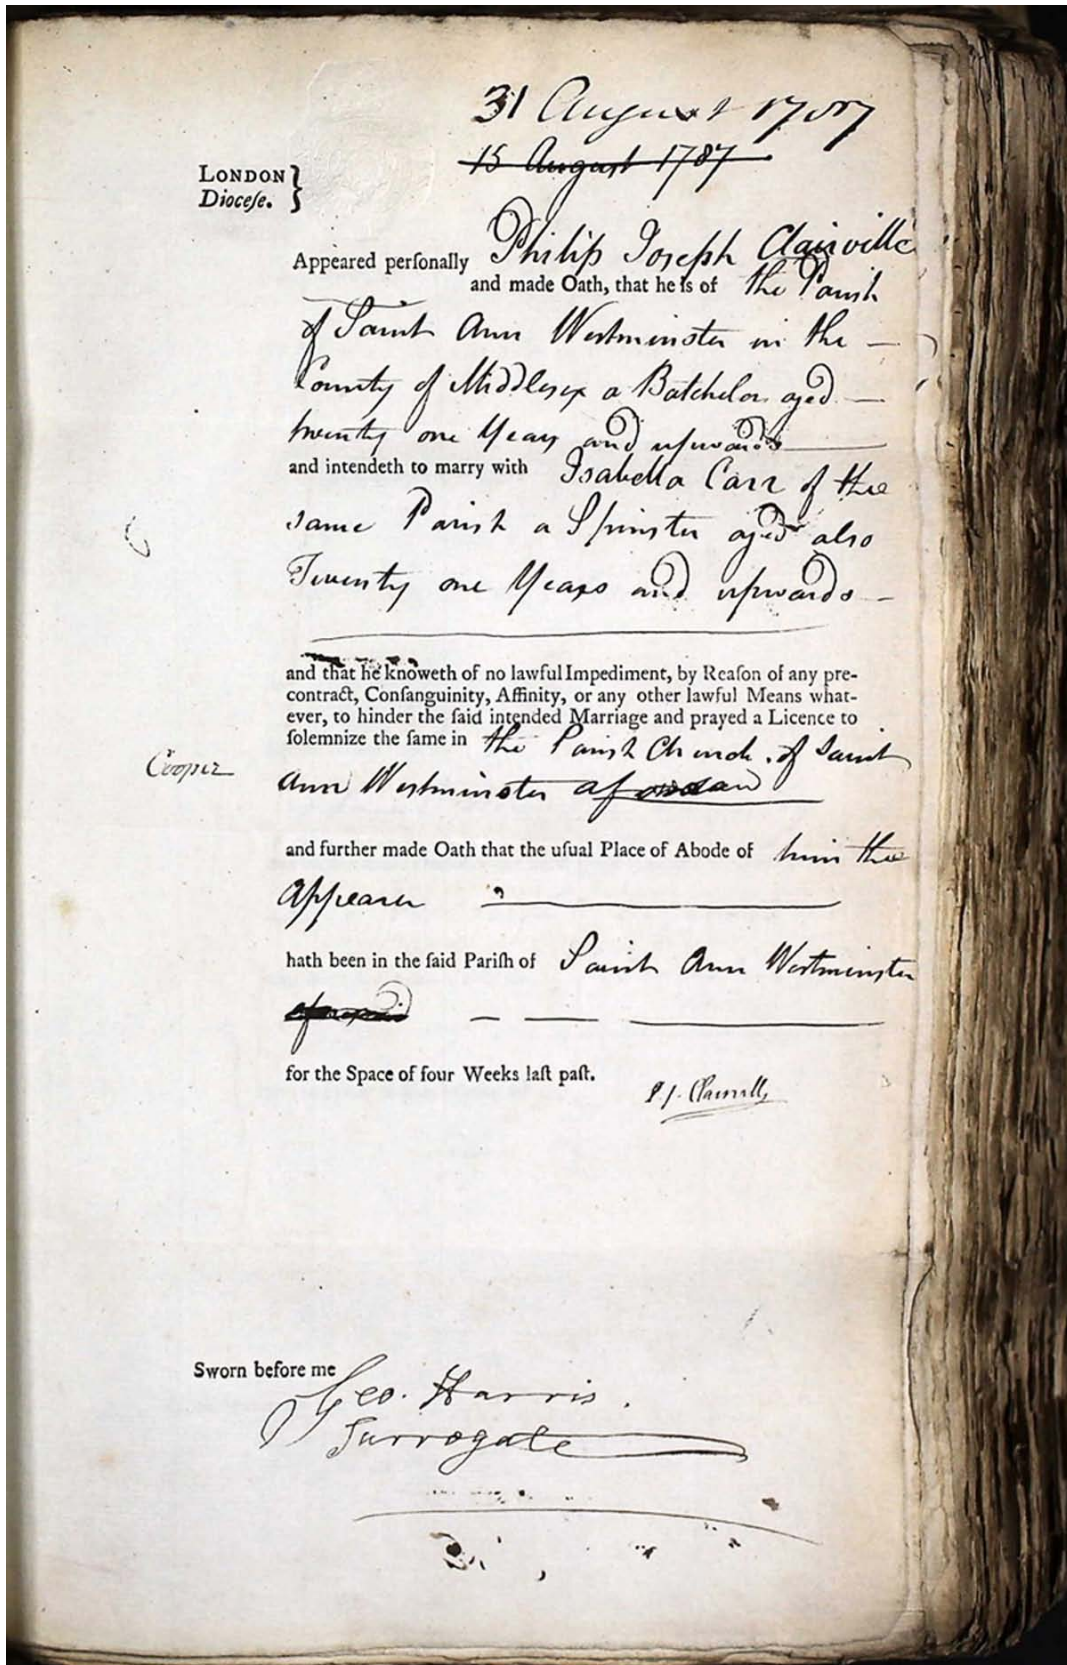 31 August 1787
15 August 1787
LONDON
Dioceſe.
Appeared perſonally Philip Joseph Clairville
and made Oath, that he is of the Parish
of Saint Ann Westminster in the
County of Middlesex a Batchelor aged
twenty one Years and upwards
and intendeth to marry with Isabella Carr of the
same Parish a Spinster aged also
Twenty one Years and upwards
and that he knoweth of no lawful Impediment, by Reaſon of any pre-
contract, Conſanguinity, Affinity, or any other lawful Means what-
ever, to hinder the ſaid intended Marriage and prayed a Licence to
ſolemnize the ſame in the Parish Church of Saint
Cooper
Ann Westminster
and further made Oath that the uſual Place of Abode of him the
Appearer
hath been in the ſaid Pariſh of Saint Ann Westminster
for the Space of four Weeks laſt paſt.
P. J. Clairville
Sworn before me
Geo. Harris.
Surrogate